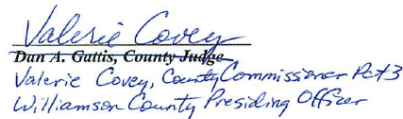 Valerie Covey
Dan A. Gattis, County Judge
Valerie Covey, County Commissioner Pct 3
Williamson County Presiding Officer